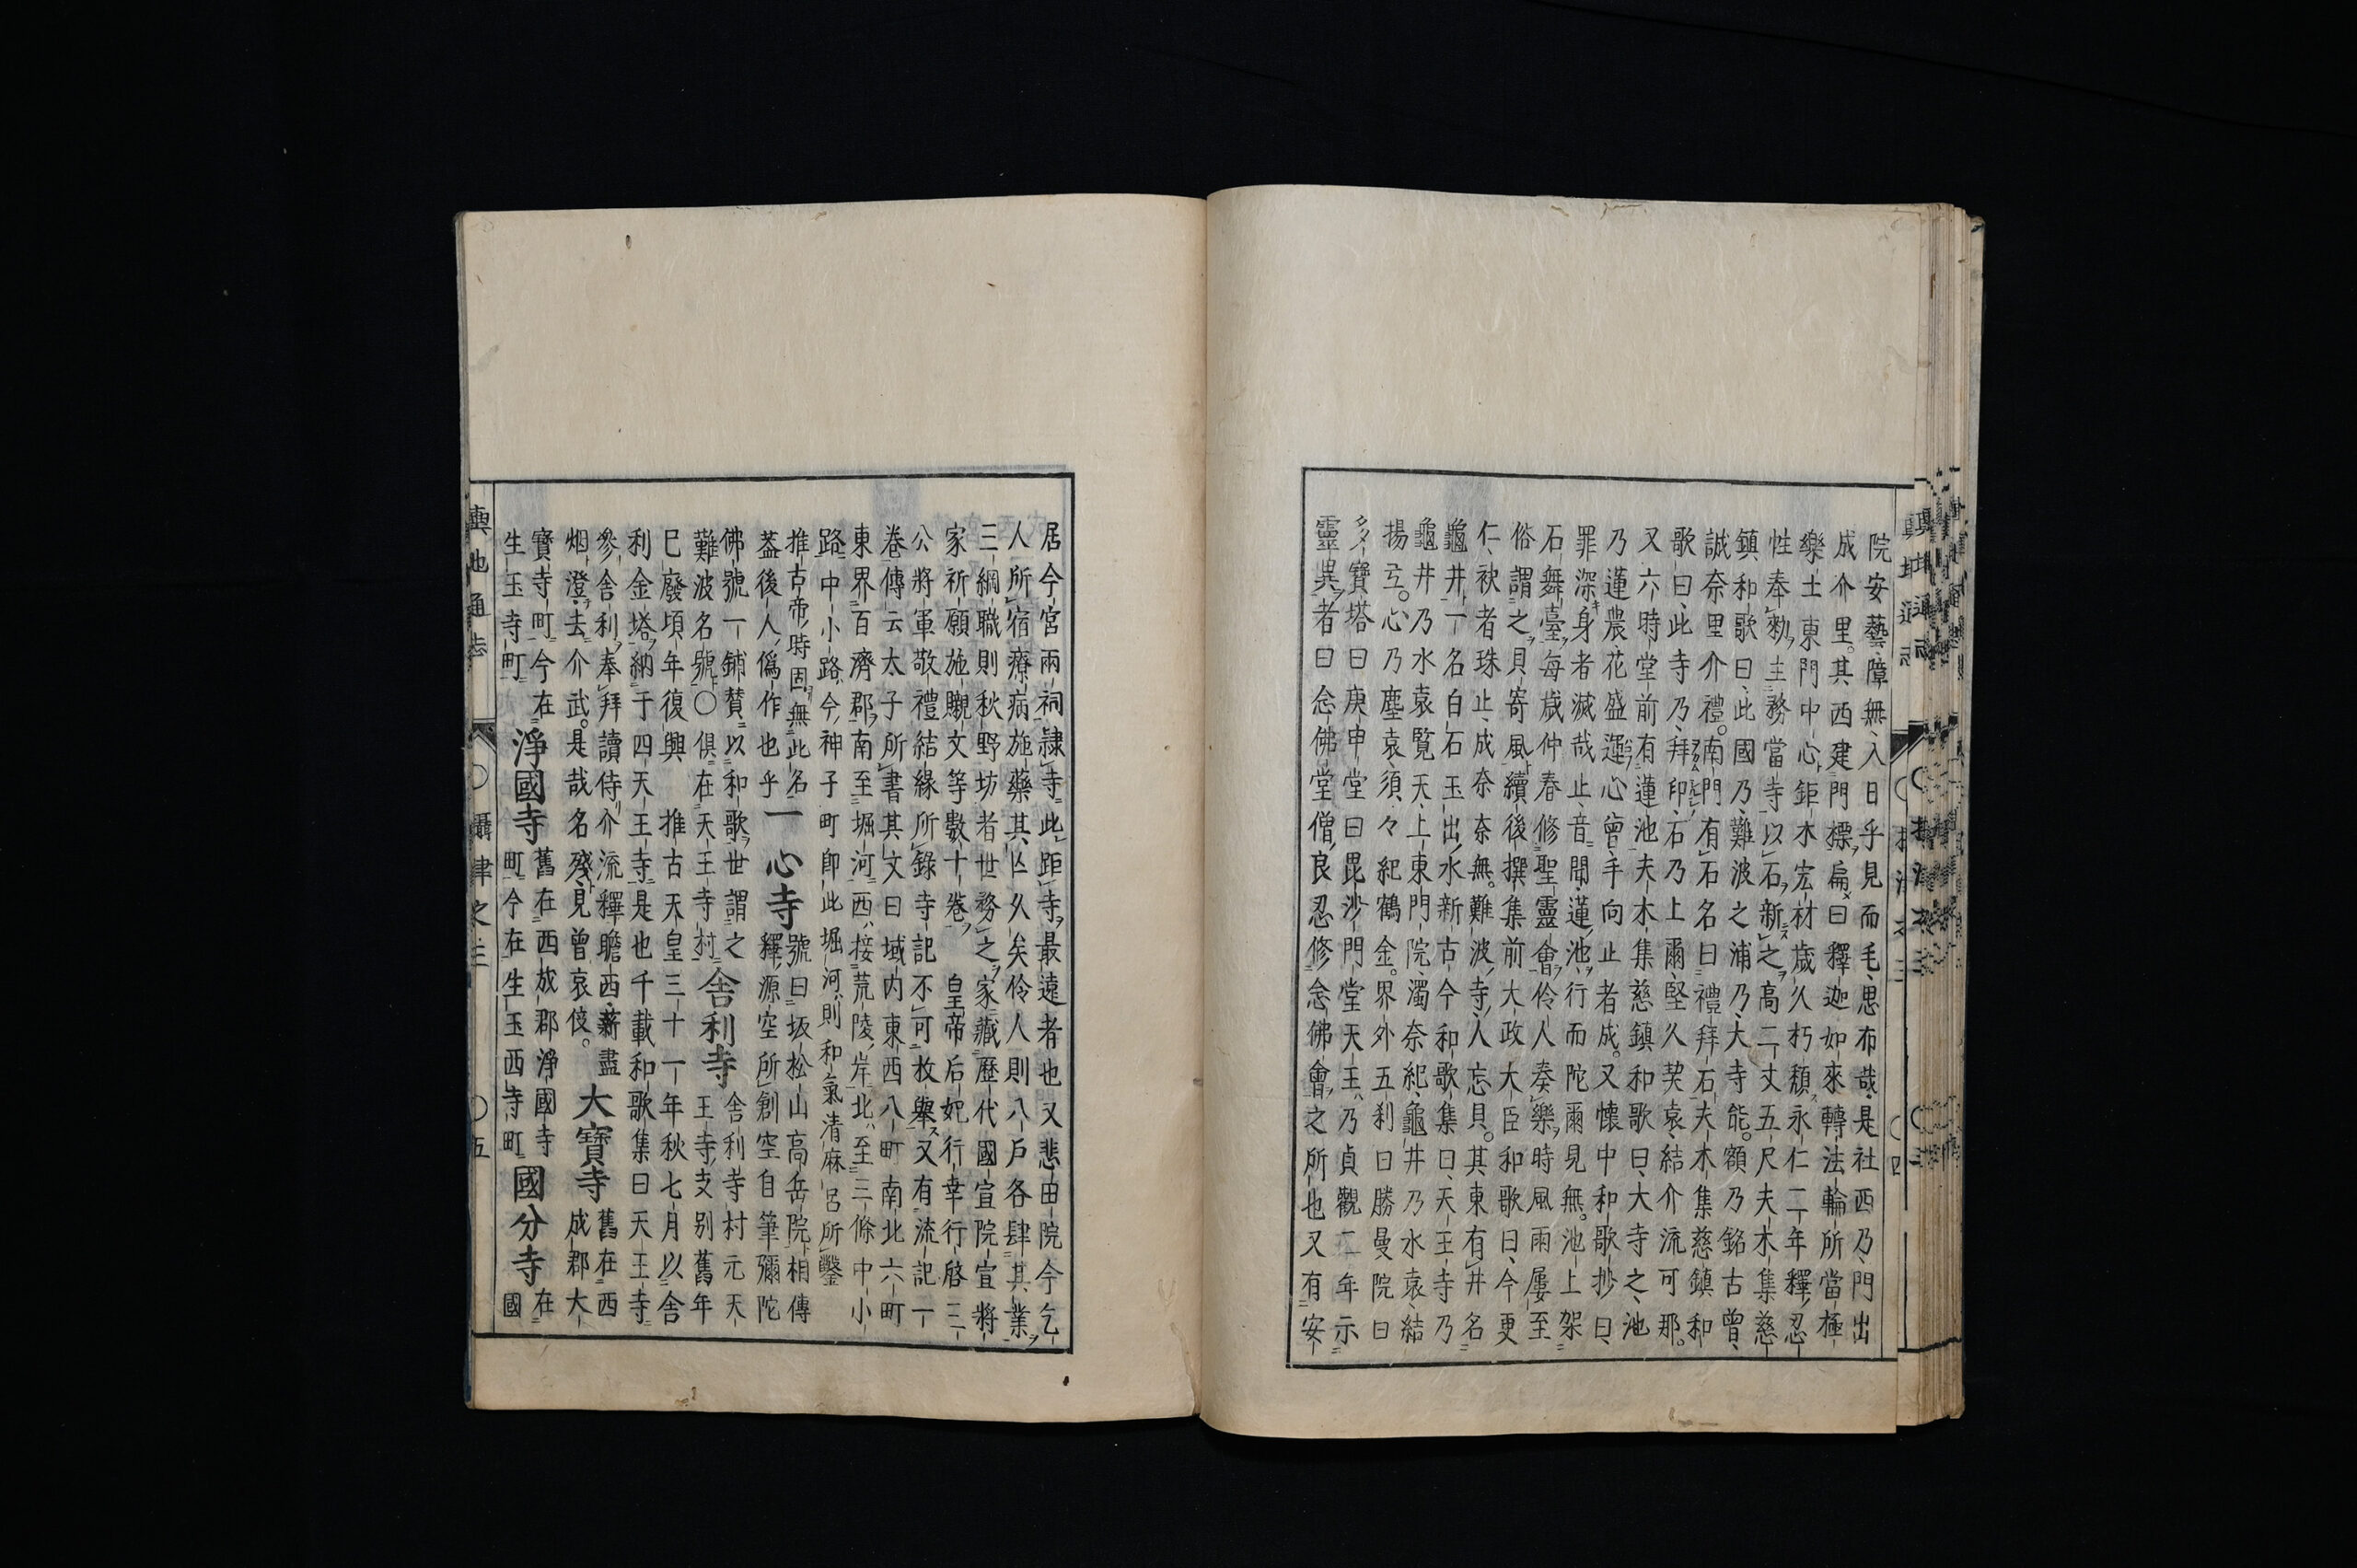 院安藝障無入日乎見而毛思布哉是社西乃門出
成介里其西建門標扁曰釋迦如來轉法輪所當極
樂土東門中心鉅木宏材歳久朽頽永仁二年釋忍
性奉勅主務當寺以石新之高二丈五尺夫木集慈
鎮和歌曰此國乃難波之浦乃大寺能額乃銘古曾
誠奈里介禮南門有石名曰禮拜石夫木集慈鎮和
歌曰此寺乃拜印石乃上爾堅久契哀結介流可那
又六時堂前有蓮池夫木集慈鎮和歌曰大寺之池
乃蓮農花盛運心曾手向止者成又懐中和歌抄曰
罪深身者滅哉止音聞蓮池行而陀爾見無池上架
石舞臺每歳仲春修聖靈會伶人奏樂時風雨屢至
俗謂之貝寄風續後撰集前大政大臣和歌曰今更
仁袂者珠止成奈奈無難波寺人忘貝其東有井名
龜井一名白石玉出水新古今和歌集曰天王寺乃
龜井乃水哀覧天上東門院濁奈紀龜井乃水哀結
揚弖心乃塵哀須々紀鶴金界外五利曰勝曼院曰
多寶塔曰庚申堂曰毘沙門堂天王乃貞觀二年示
靈異者曰念佛堂僧良忍修念佛會之所也又有安
居今宮兩祠隷寺此距寺最遠者也又悲田院今乞
人所宿療病施藥其亡久矣伶人則八戸各肆其業
三綱職則秋野坊者世務之家藏歷代國宣院宣將
家祈願施䞋文等數十卷 皇帝后妃行幸行啓三
公將軍敬禮結緣所錄寺記不可枚舉又有流記一
卷傳云太子所書其文曰域内東西八町南北六町
東界百濟郡南至堀河西接荒陵岸北至三條中小
路中小路今神子町即此堀河則和氣清麻呂所鑿
推古帝時固無此名
蓋後人僞作也乎一心寺號曰坂松山高岳院相傳
釋源空所創空自筆彌陀
佛號一鋪賛以和歌世謂之
難波名號〇俱在天王寺村舍利寺舍利寺村元天
王寺支别舊年
巳廢頃年復興 推古天皇三十一年秋七月以舍
利金塔納于四天王寺是也千載和歌集曰天王寺
參舍利奉拜讀侍介流釋瞻西薪盡
烟澄去介武是哉名殘見曾哀伎大寶寺舊在西
成郡大
寶寺町今在
生玉寺町淨國寺舊在西成郡淨國寺
町今在生玉西寺町國分寺在
國
輿地通志 〇攝津之三 〇五